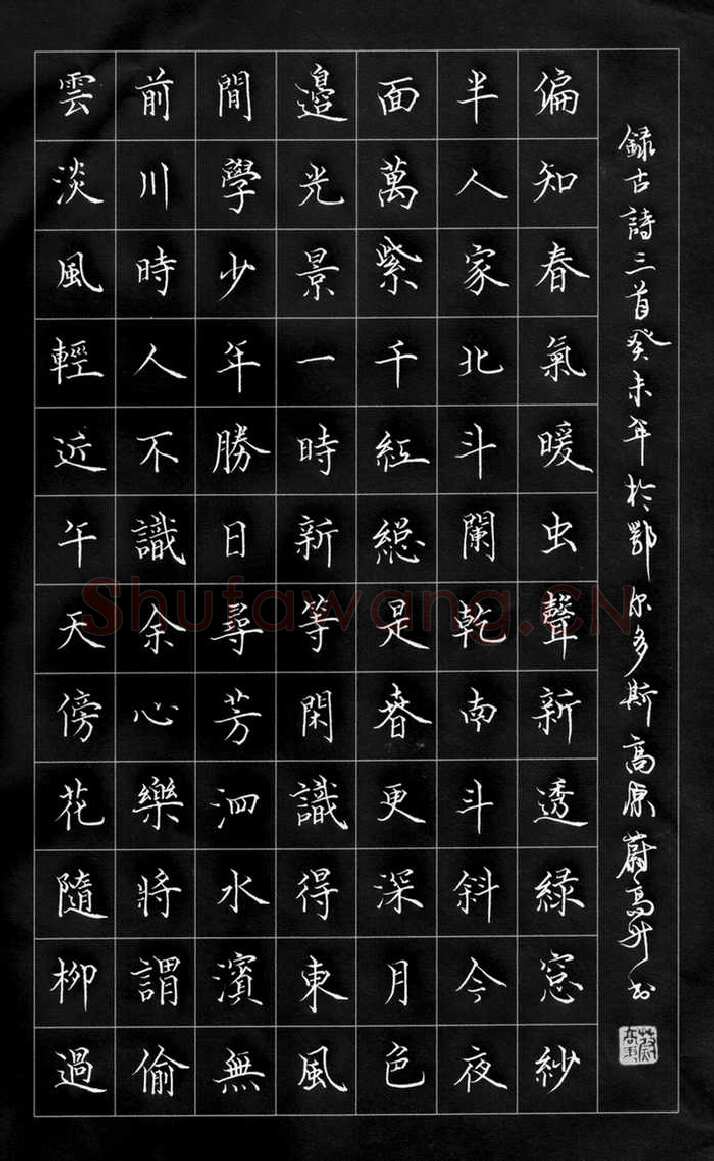 雲淡風輕近午天傍花隨柳過
前川時人不識余心樂將謂偷
閒學少年勝日尋芳泗水濱無
邊光景一時新等閑識得東風
面萬紫千紅緫是春更深月色
半人家北斗闌乾南斗斜今夜
偏知春氣暖虫聲新透綠窓紗
録古詩三首癸未年於鄂尔多斯高原蔚高升书
Shufawang.CN